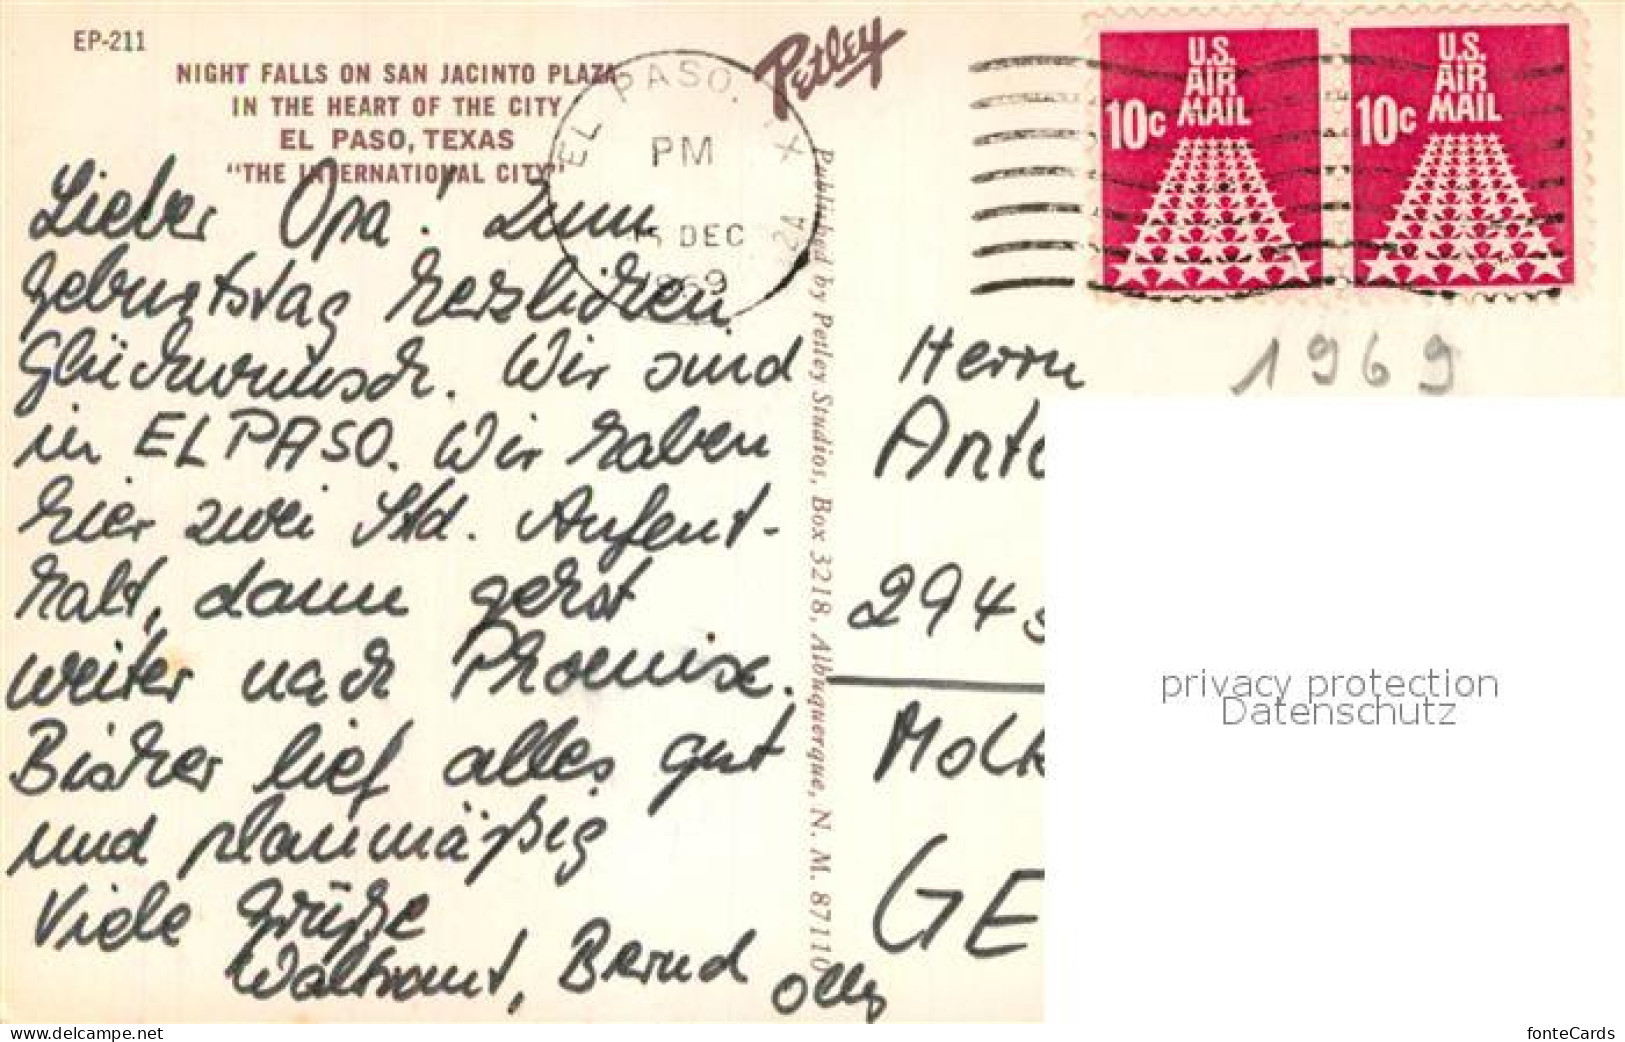 EP-211
NIGHT FALLS ON SAN JACINTO PLAZA
IN THE HEART OF THE CITY
EL PASO, TEXAS
"THE INTERNATIONAL CITY"
Lieber Opa! Zum
Geburtstag herzlichen
Glückwunsch. Wir sind
in EL PASO. Wir haben
hier zwei Std. Aufent-
halt, dann gehst
weiter nach Phoenix.
Bisher lief alles gut
und planmäßig
Viele Grüße
Waltraut, Bernd
Olly
EL PASO, TX
PM
15 DEC
1969
Petley
Published by Petley Studios, Box 3218, Albuquerque, N. M. 87110
U.S.
AIR
MAIL
10c
U.S.
AIR
MAIL
10c
1969
Herrn
Anto
294
Molk
GE
privacy protection
Datenschutz
www.delcampe.net
fonteCards